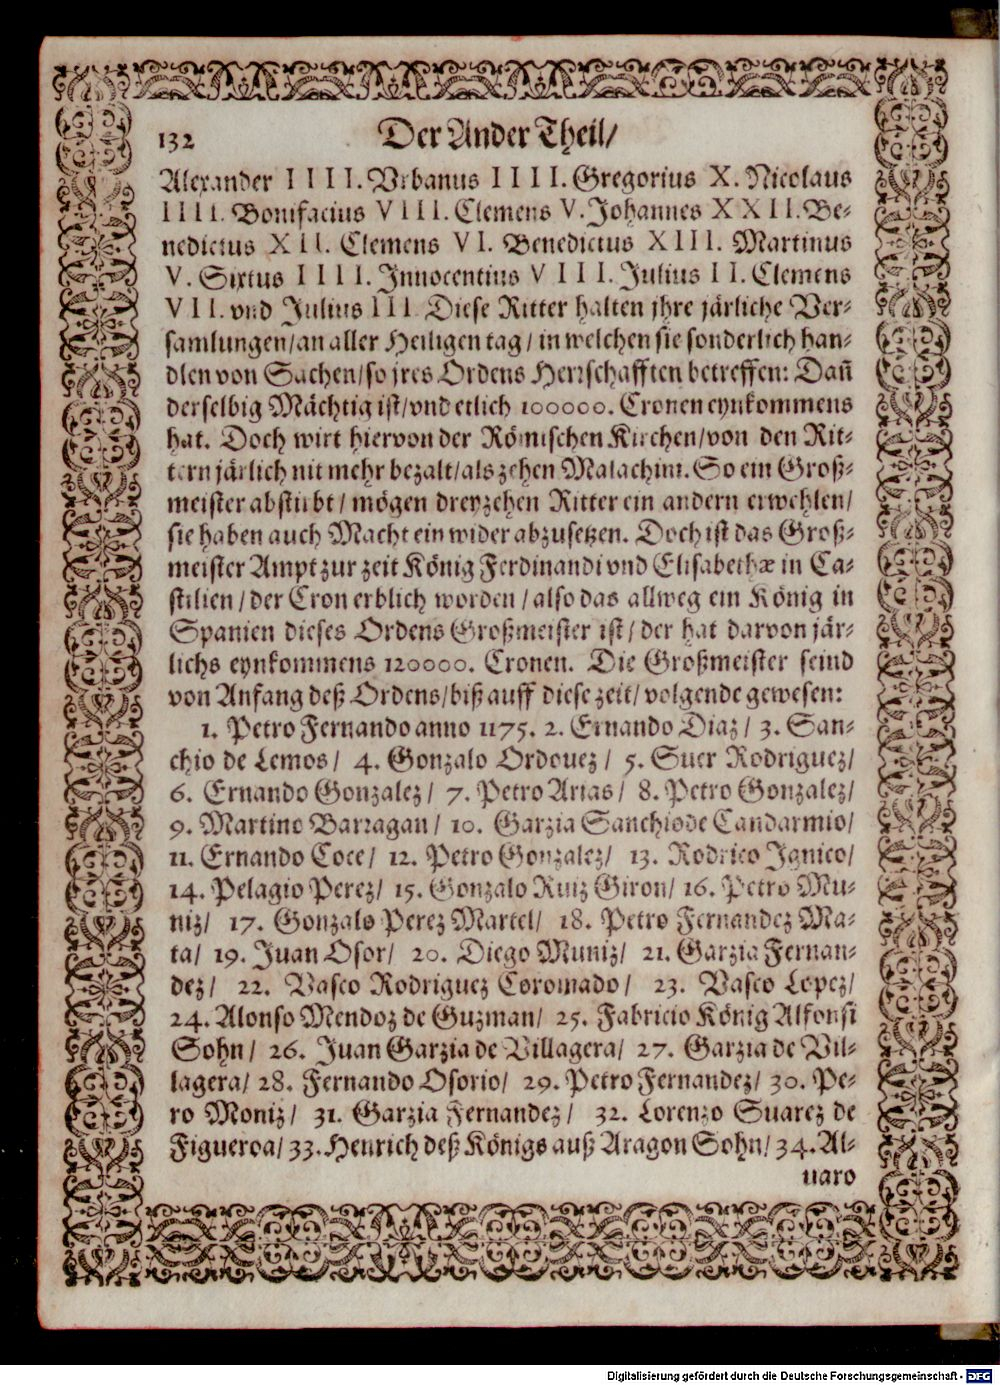 132
Der Ander Theil/
Alexander IIII. Vrbanus IIII. Gregorius X. Nicolaus
IIII. Bonifacius VIII. Clemens V. Johannes XXII. Be-
nedictus XII. Clemens VI. Benedictus XIII. Martinus
V. Sixtus IIII. Innocentius VIII. Julius II. Clemens
VII. vnd Julius III. Diese Ritter halten jhre järliche Ver-
samlungen/an aller Heiligen tag/ in welchen sie sonderlich han-
dlen von Sachen/so jres Ordens Herrschafften betreffen: Dañ
derselbig Mächtig ist/vnd etlich 100000. Cronen eynkommens
hat. Doch wirt hiervon der Römischen Kirchen/von den Rit-
tern järlich nit mehr bezalt/als zehen Malachini. So ein Groß-
meister abstirbt/ mögen dreyzehen Ritter ein andern erwehlen/
sie haben auch Macht ein wider abzusetzen. Doch ist das Groß-
meister Ampt zur zeit König Ferdinandi vnd Elisabethæ in Ca-
stilien/ der Cron erblich worden/ also das allweg ein König in
Spanien dieses Ordens Großmeister ist/ der hat darvon jär-
lichs eynkommens 120000. Cronen. Die Großmeister seind
von Anfang deß Ordens/biß auff diese zeit/ volgende gewesen:
1. Petro Fernando anno 1175. 2. Ernando Diaz/ 3. San-
chio de Lemos/ 4. Gonzalo Ordouez/ 5. Suer Rodriguez/
6. Ernando Gonzalez/ 7. Petro Arias/ 8. Petro Gonzalez/
9. Martino Barragan/ 10. Garzia Sanchio de Candarmio/
11. Ernando Coce/ 12. Petro Gonzalez/ 13. Rodrico Ignico/
14. Pelagio Perez/ 15. Gonzalo Ruiz Giron/ 16. Petro Mu-
niz/ 17. Gonzalo Perez Martel/ 18. Petro Fernandez Ma-
ta/ 19. Juan Osor/ 20. Diego Muniz/ 21. Garzia Fernan-
dez/ 22. Vasco Rodriguez Coromado/ 23. Vasco Lopez/
24. Alonso Mendoz de Guzman/ 25. Fabricio König Alfonsi
Sohn/ 26. Juan Garzia de Villagera/ 27. Garzia de Vil-
lagera/ 28. Fernando Osorio/ 29. Petro Fernandez/ 30. Pe-
ro Moniz/ 31. Garzia Fernandez/ 32. Lorenzo Suarez de
Figueroa/ 33. Henrich deß Königs auß Aragon Sohn/ 34. Al-
uaro
Digitalisierung gefördert durch die Deutsche Forschungsgemeinschaft - DFG